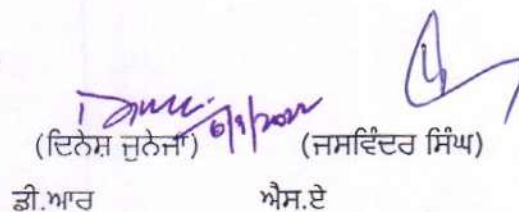 6/9/2022
(ਦਿਨੇਸ਼ ਜੁਨੇਜਾ) (ਜਸਵਿੰਦਰ ਸਿੰਘ)
ਡੀ.ਆਰ ਐਸ.ਏ